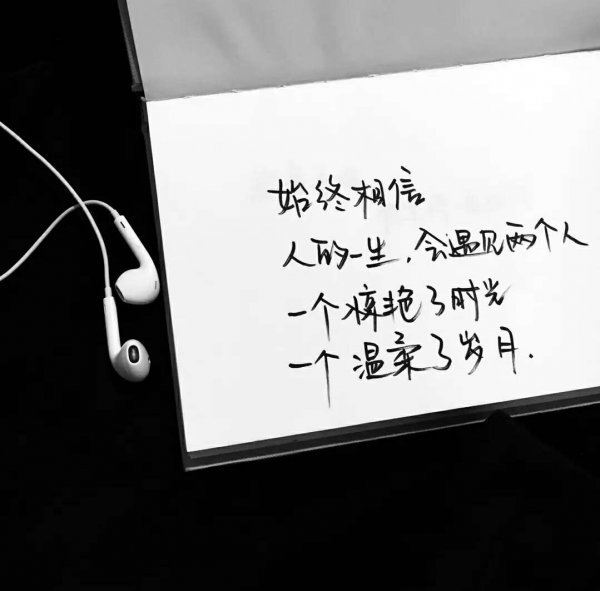 始终相信
人的一生，会遇见两个人
一个惊艳了时光
一个温柔了岁月.